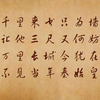 千里来书只为墙
让他三尺又何妨
万里长城今犹在
不见当年秦始皇